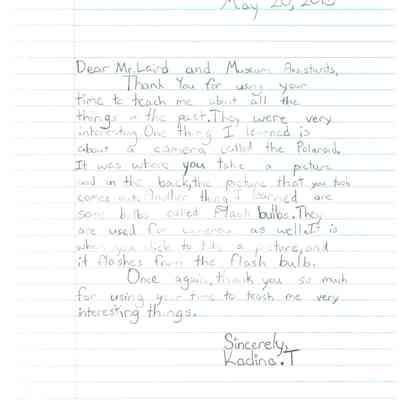 May 20, 
Dear Mr. Laird and Museum Assistants,
Thank You for using your
time to teach me about all the
things in the past. They were very
interesting. One thing I learned is
about a camera called the Polaroid.
It was where you take a picture
and on the back, the picture that you took
comes out. Another thing I learned are
some bulbs called Flash bulbs. They
are used for cameras as well. It is
when you click to take a picture, and
it flashes from the flash bulb.
Once again, thank you so much
for using your time to teach me very
interesting things.
Sincerely,
Kadina.T